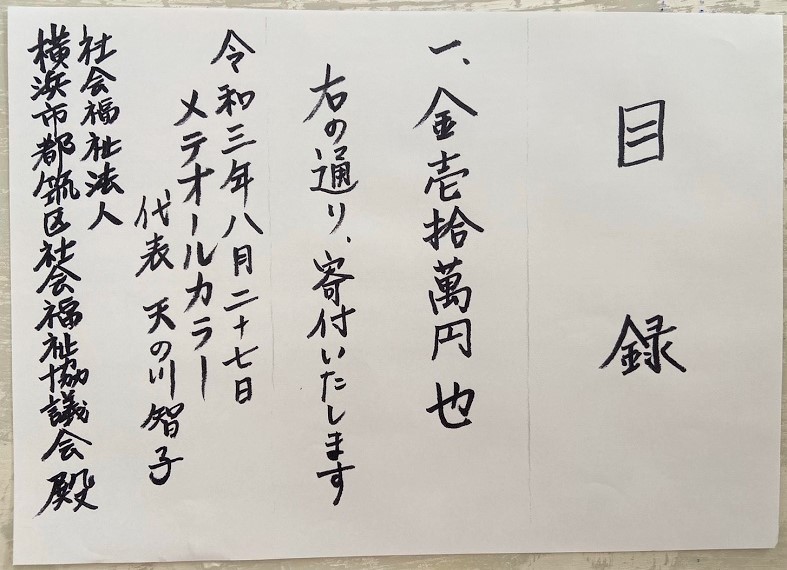 目録
一、金壱拾萬円也
右の通り、寄付いたします
令和三年八月二十七日
メテオールカラー
代表 天の川智子
社会福祉法人
横浜市都筑区社会福祉協議会 殿